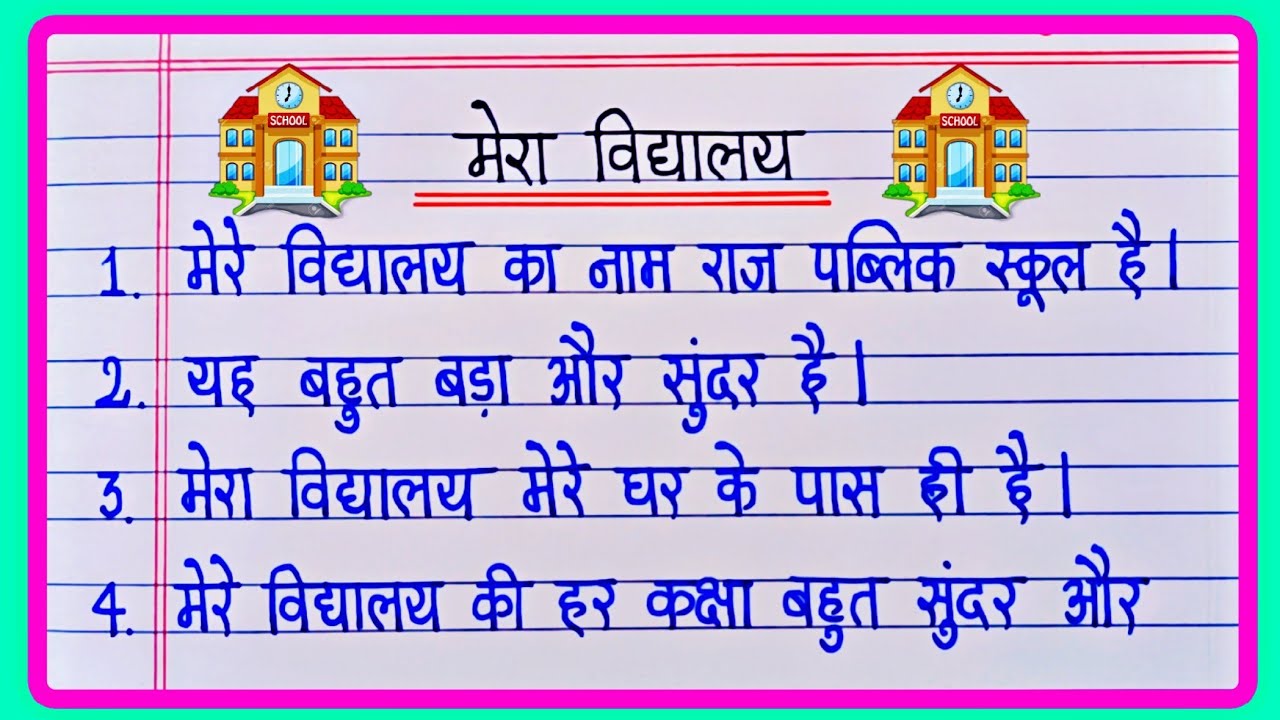 SCHOOL
SCHOOL
मेरा विद्यालय
1. मेरे विद्यालय का नाम राज पब्लिक स्कूल है।
2. यह बहुत बड़ा और सुंदर है।
3. मेरा विद्यालय मेरे घर के पास ही है।
4. मेरे विद्यालय की हर कक्षा बहुत सुंदर और